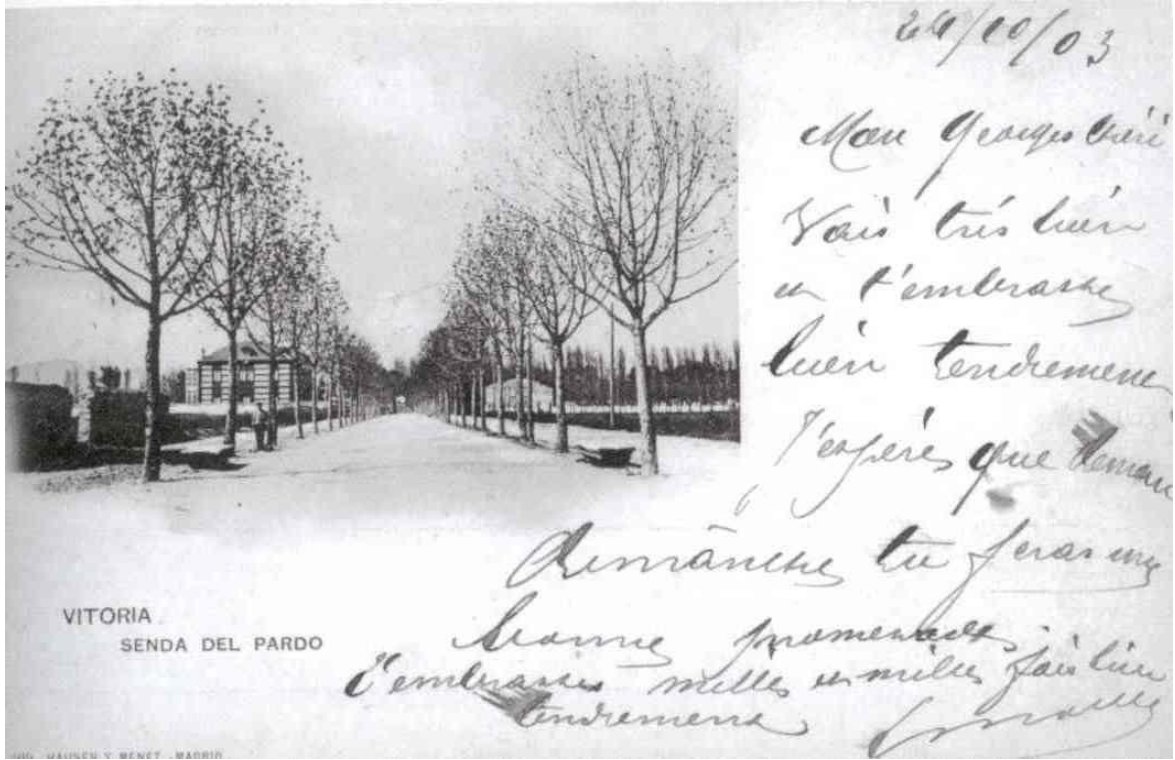 24/10/03
Mon Georges chéri
Vais très bien
et t'embrasse
bien tendrement
J'espères que demain
dimanche tu feras une
bonne promenade
T'embrasses milles et milles fois bien
tendrement
VITORIA
SENDA DEL PARDO
HAUSER Y MENET.-MADRID